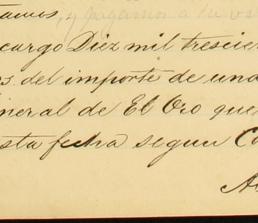 tamos, y pagamos a la vs
cargo Diez mil trescien
os del importe de una
neral de El Oro que
sta fecha segun Co
A